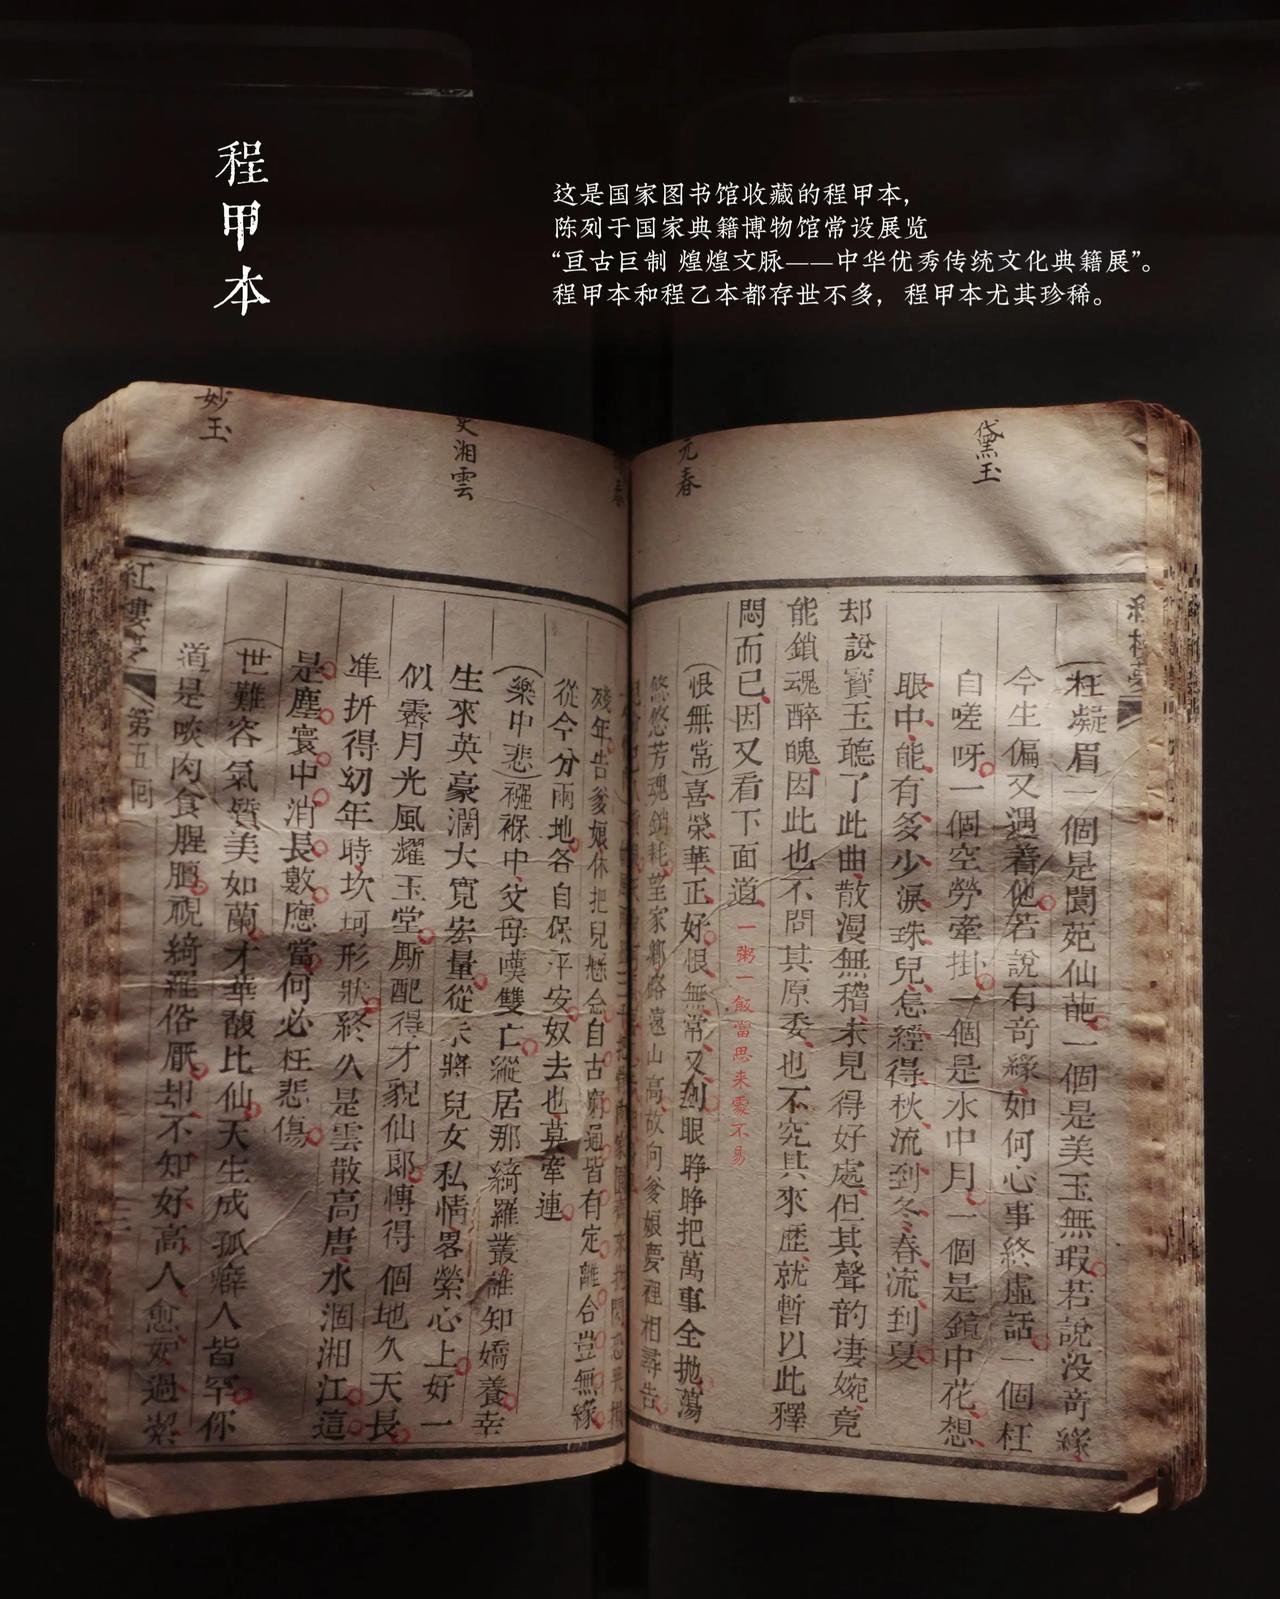 程甲本
这是国家图书馆收藏的程甲本，
陈列于国家典籍博物馆常设展览
“亘古巨制 煌煌文脉——中华优秀传统文化典籍展”。
程甲本和程乙本都存世不多，程甲本尤其珍稀。
黛玉
元春
史湘雲
妙玉
（枉凝眉一個是閬苑仙葩一個是美玉無瑕若說没奇緣
今生偏又遇着他若說有奇緣如何心事終虛話一個枉
自嗟呀一個空勞牽掛一個是水中月一個是鏡中花想
眼中能有多少淚珠兒怎經得秋流到冬春流到夏
却說寶玉聽了此曲散漫無稽未見得好處但其聲韵凄婉竟
能銷魂醉魄因此也不問其原委也不究其來歷就暫以此釋
悶而已因又看下面道
一粥一飯當思来處不易
（恨無常）喜榮華正好恨無常又到眼睁睁把萬事全抛蕩
悠悠芳魂銷耗望家鄉路遠山高故向爹娘夢裡相尋告
殘年告爹娘休把兒懸念自古窮通皆有定離合豈無緣
從今分兩地各自保平安奴去也莫牽連
（樂中悲）襁褓中父母嘆雙亡縱居那綺羅叢誰知嬌養幸
生來英豪濶大寛宏量從未將兒女私情畧縈心上好一
似霽月光風耀玉堂厮配得才貌仙郎博得個地久天長
准折得幼年時坎坷形狀終久是雲散高唐水涸湘江這
是塵寰中消長數應當何必枉悲傷
（世難容氣質美如蘭才華馥比仙天生成孤癖人皆罕你
道是啖肉食腥膻視綺羅俗厭却不知好高人愈妬過潔
紅樓夢
第五回